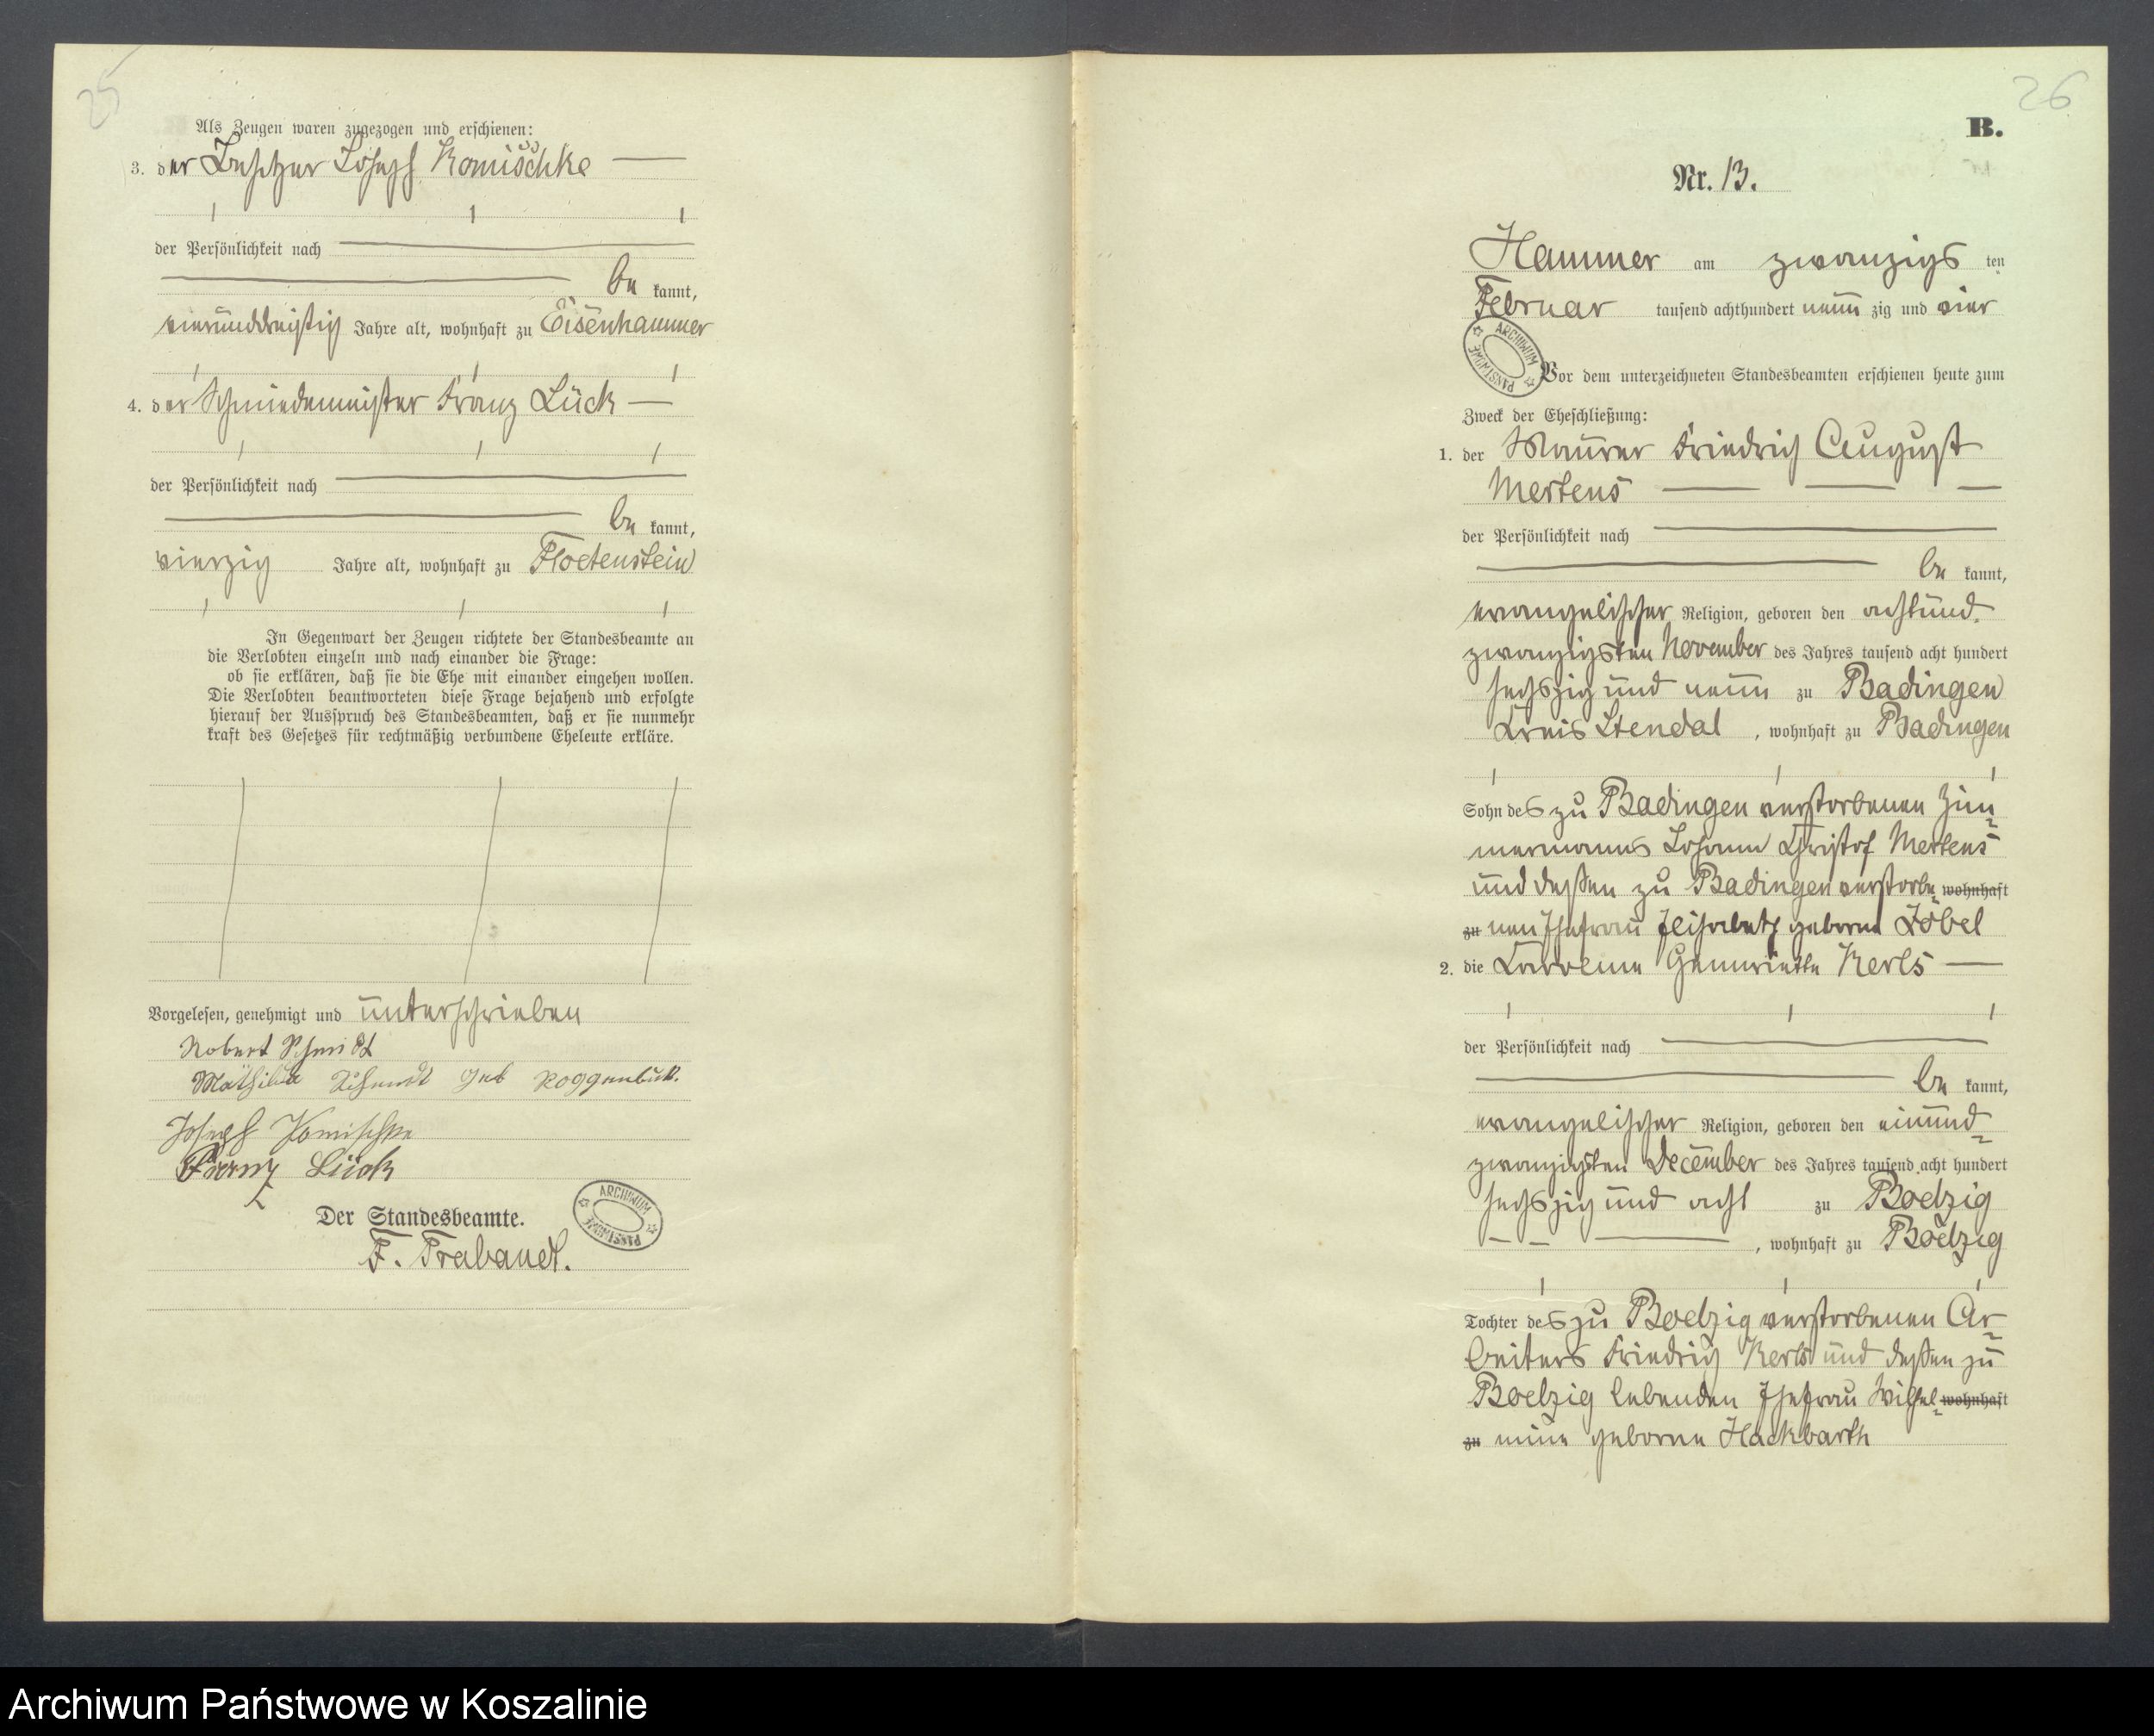 25
Als Zeugen waren zugezogen und erschienen:
3. der Besitzer Joseph Komischke
der Persönlichkeit nach
be kannt,
vierunddreißig Jahre alt, wohnhaft zu Eisenhammer
4. der Schmiedemeister Franz Lück
der Persönlichkeit nach
be kannt,
vierzig Jahre alt, wohnhaft zu Floetenstein
In Gegenwart der Zeugen richtete der Standesbeamte an
die Verlobten einzeln und nach einander die Frage:
ob sie erklären, daß sie die Ehe mit einander eingehen wollen.
Die Verlobten beantworteten diese Frage bejahend und erfolgte
hierauf der Ausspruch des Standesbeamten, daß er sie nunmehr
kraft des Gesetzes für rechtmäßig verbundene Eheleute erkläre.
Vorgelesen, genehmigt und unterschrieben
Robert Schmidt
Mathilde Schmidt geb Roggenbuck.
Joseph Komischke
Franz Lück
Der Standesbeamte.
ARCHIWUM PAŃSTWOWE
F. Trabandt.
26
B.
Nr. 13.
Hammer am zwanzigs ten
Februar tausend achthundert neun zig und vier
ARCHIWUM PAŃSTWOWE
Vor dem unterzeichneten Standesbeamten erschienen heute zum
Zweck der Eheschließung:
1. der Maurer Friedrich August
Mertens
der Persönlichkeit nach
be kannt,
evangelischer Religion, geboren den achtund
zwanzigsten November des Jahres tausend acht hundert
sechszig und neun zu Badingen
Kreis Stendal, wohnhaft zu Badingen
Sohn des zu Badingen verstorbenen Zim
mermanns Johann Christof Mertens
und dessen zu Badingen verstorbe wohnhaft
zu nen Ehefrau Elisabeth geborne Zöbel
2. die Karoline Henriette Kerls
der Persönlichkeit nach
be kannt,
evangelischer Religion, geboren den einund
zwanzigsten December des Jahres tausend acht hundert
sechszig und acht zu Boelzig
, wohnhaft zu Boelzig
Tochter des zu Boelzig verstorbenen Ar
beiters Friedrich Kerls und dessen zu
Boelzig lebenden Ehefrau Wilhel wohnhaft
zu mine geborne Hackbarth
Archiwum Państwowe w Koszalinie